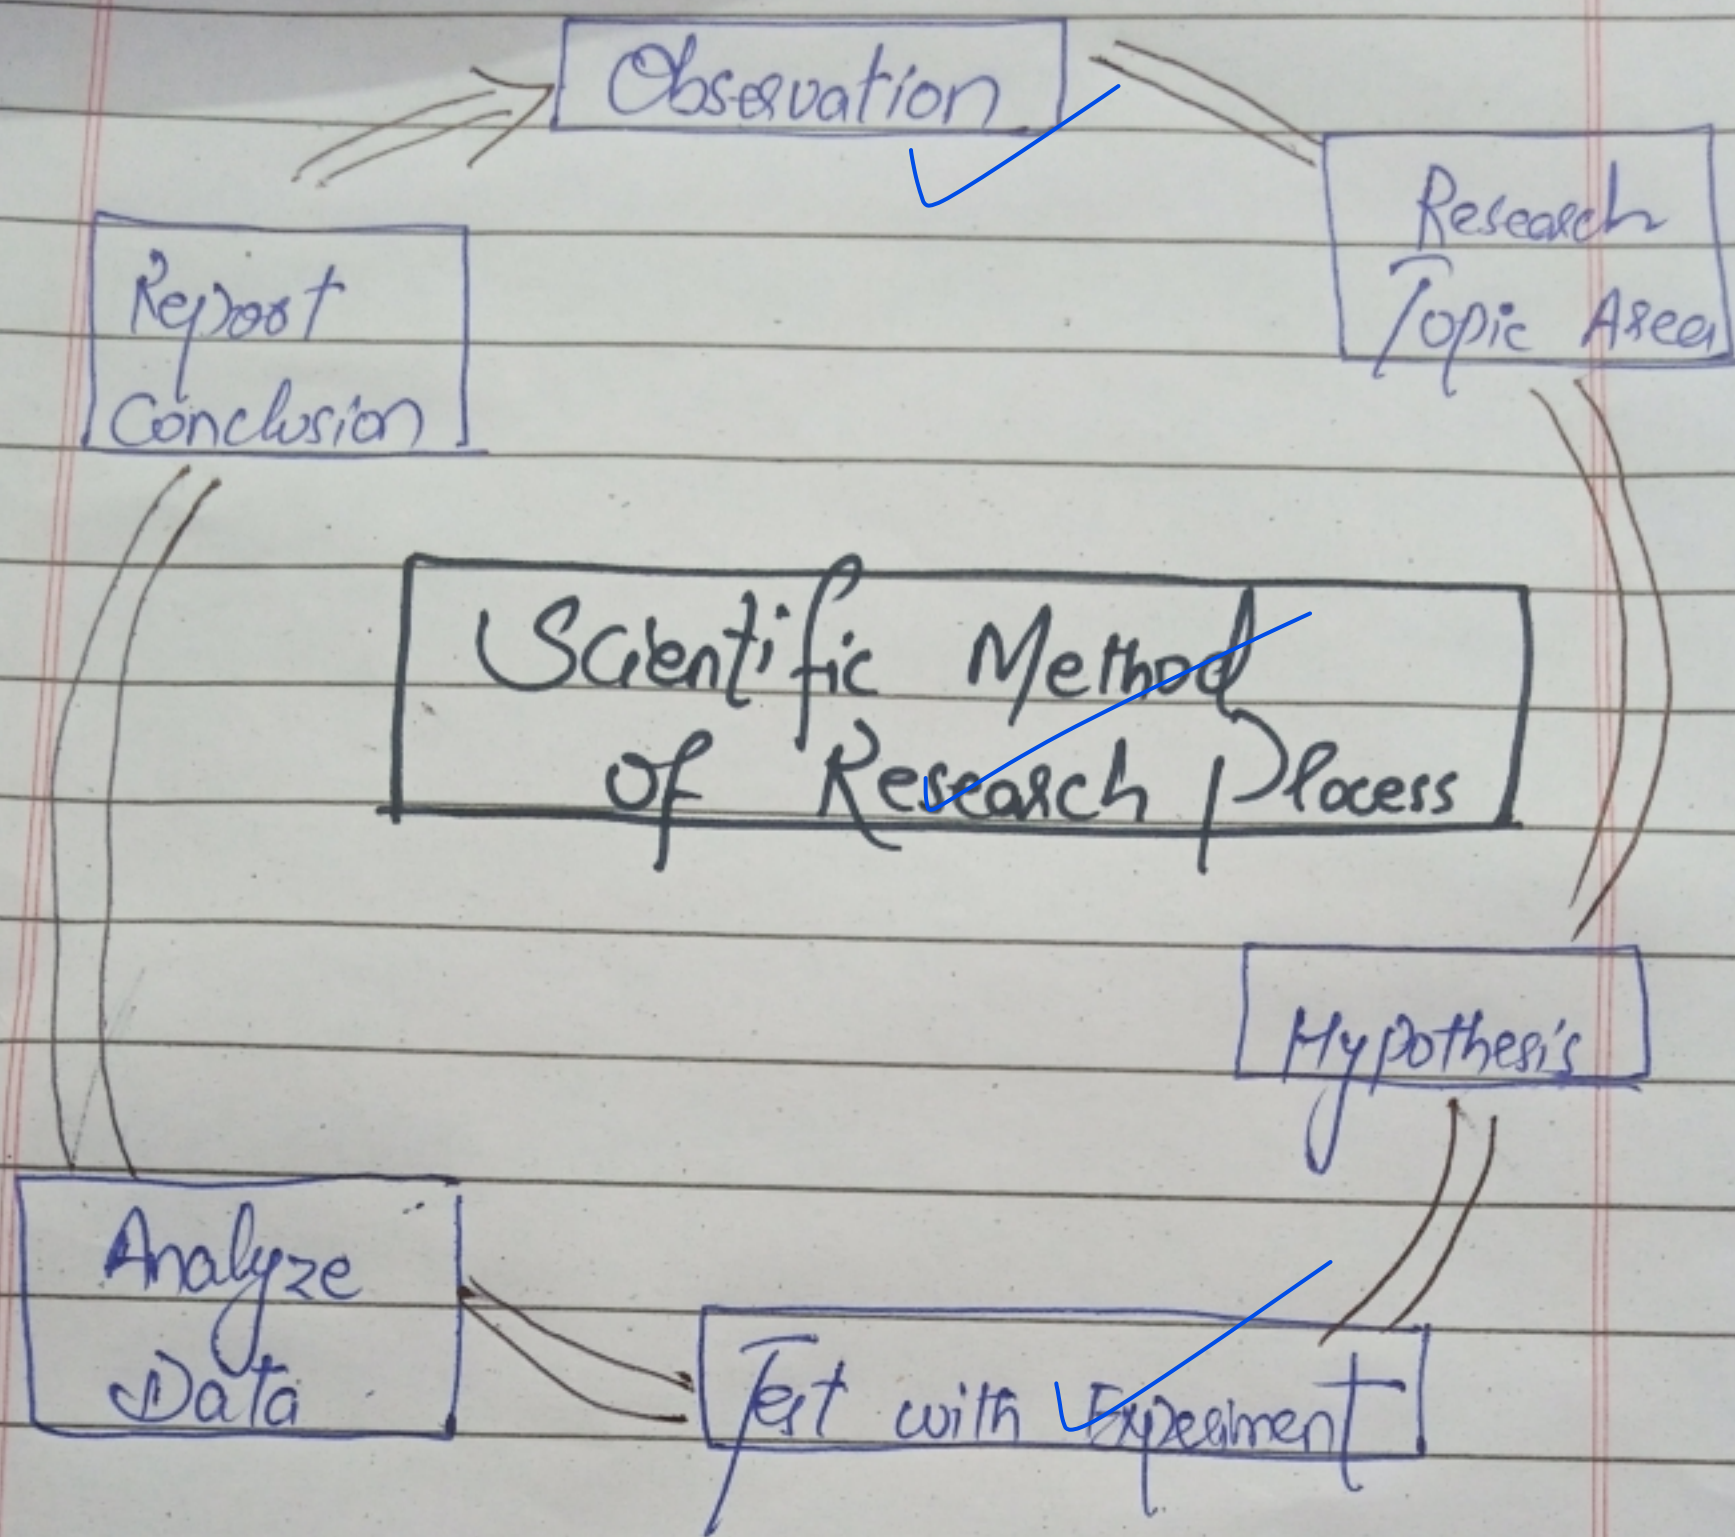 Observation
Research
Topic Area
Report
Conclusion
Scientific Method
of Research Process
Hypothesis
Analyze
Data
Test with Experiment